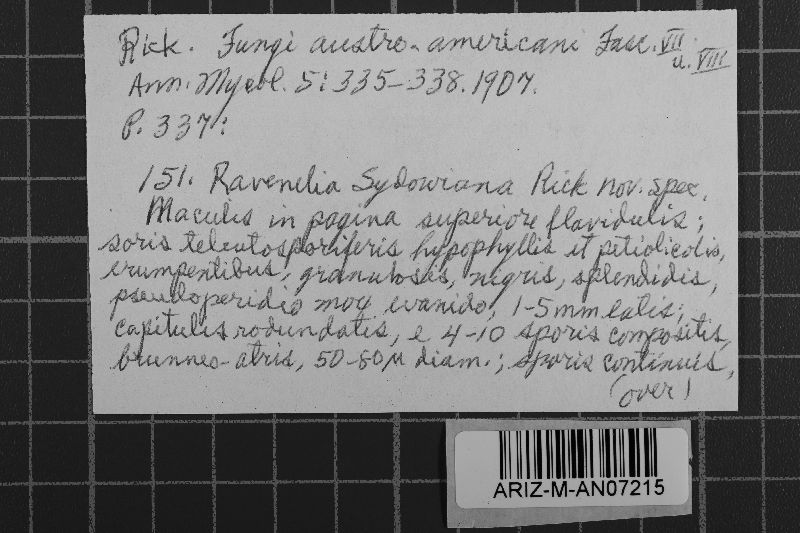 Rick. Fungi austro-americani Fasc. VII
u. VIII
Ann. Mycol. 5:335-338. 1907.
P. 337:
151. Ravenelia Sydowiana Rick nov. spec.
Maculis in pagina superiore flavidulis;
soris teleutosporiferis hypophyllis et petiolicolis,
erumpentibus, granulosis, nigris, splendidis,
pseudoperidio mox evanido, 1-5 mm latis;
capitulis rodundatis, e 4-10 sporis compositis,
brunneo-atris, 50-80µ diam.; sporis continuis,
(over)
ARIZ-M-AN07215